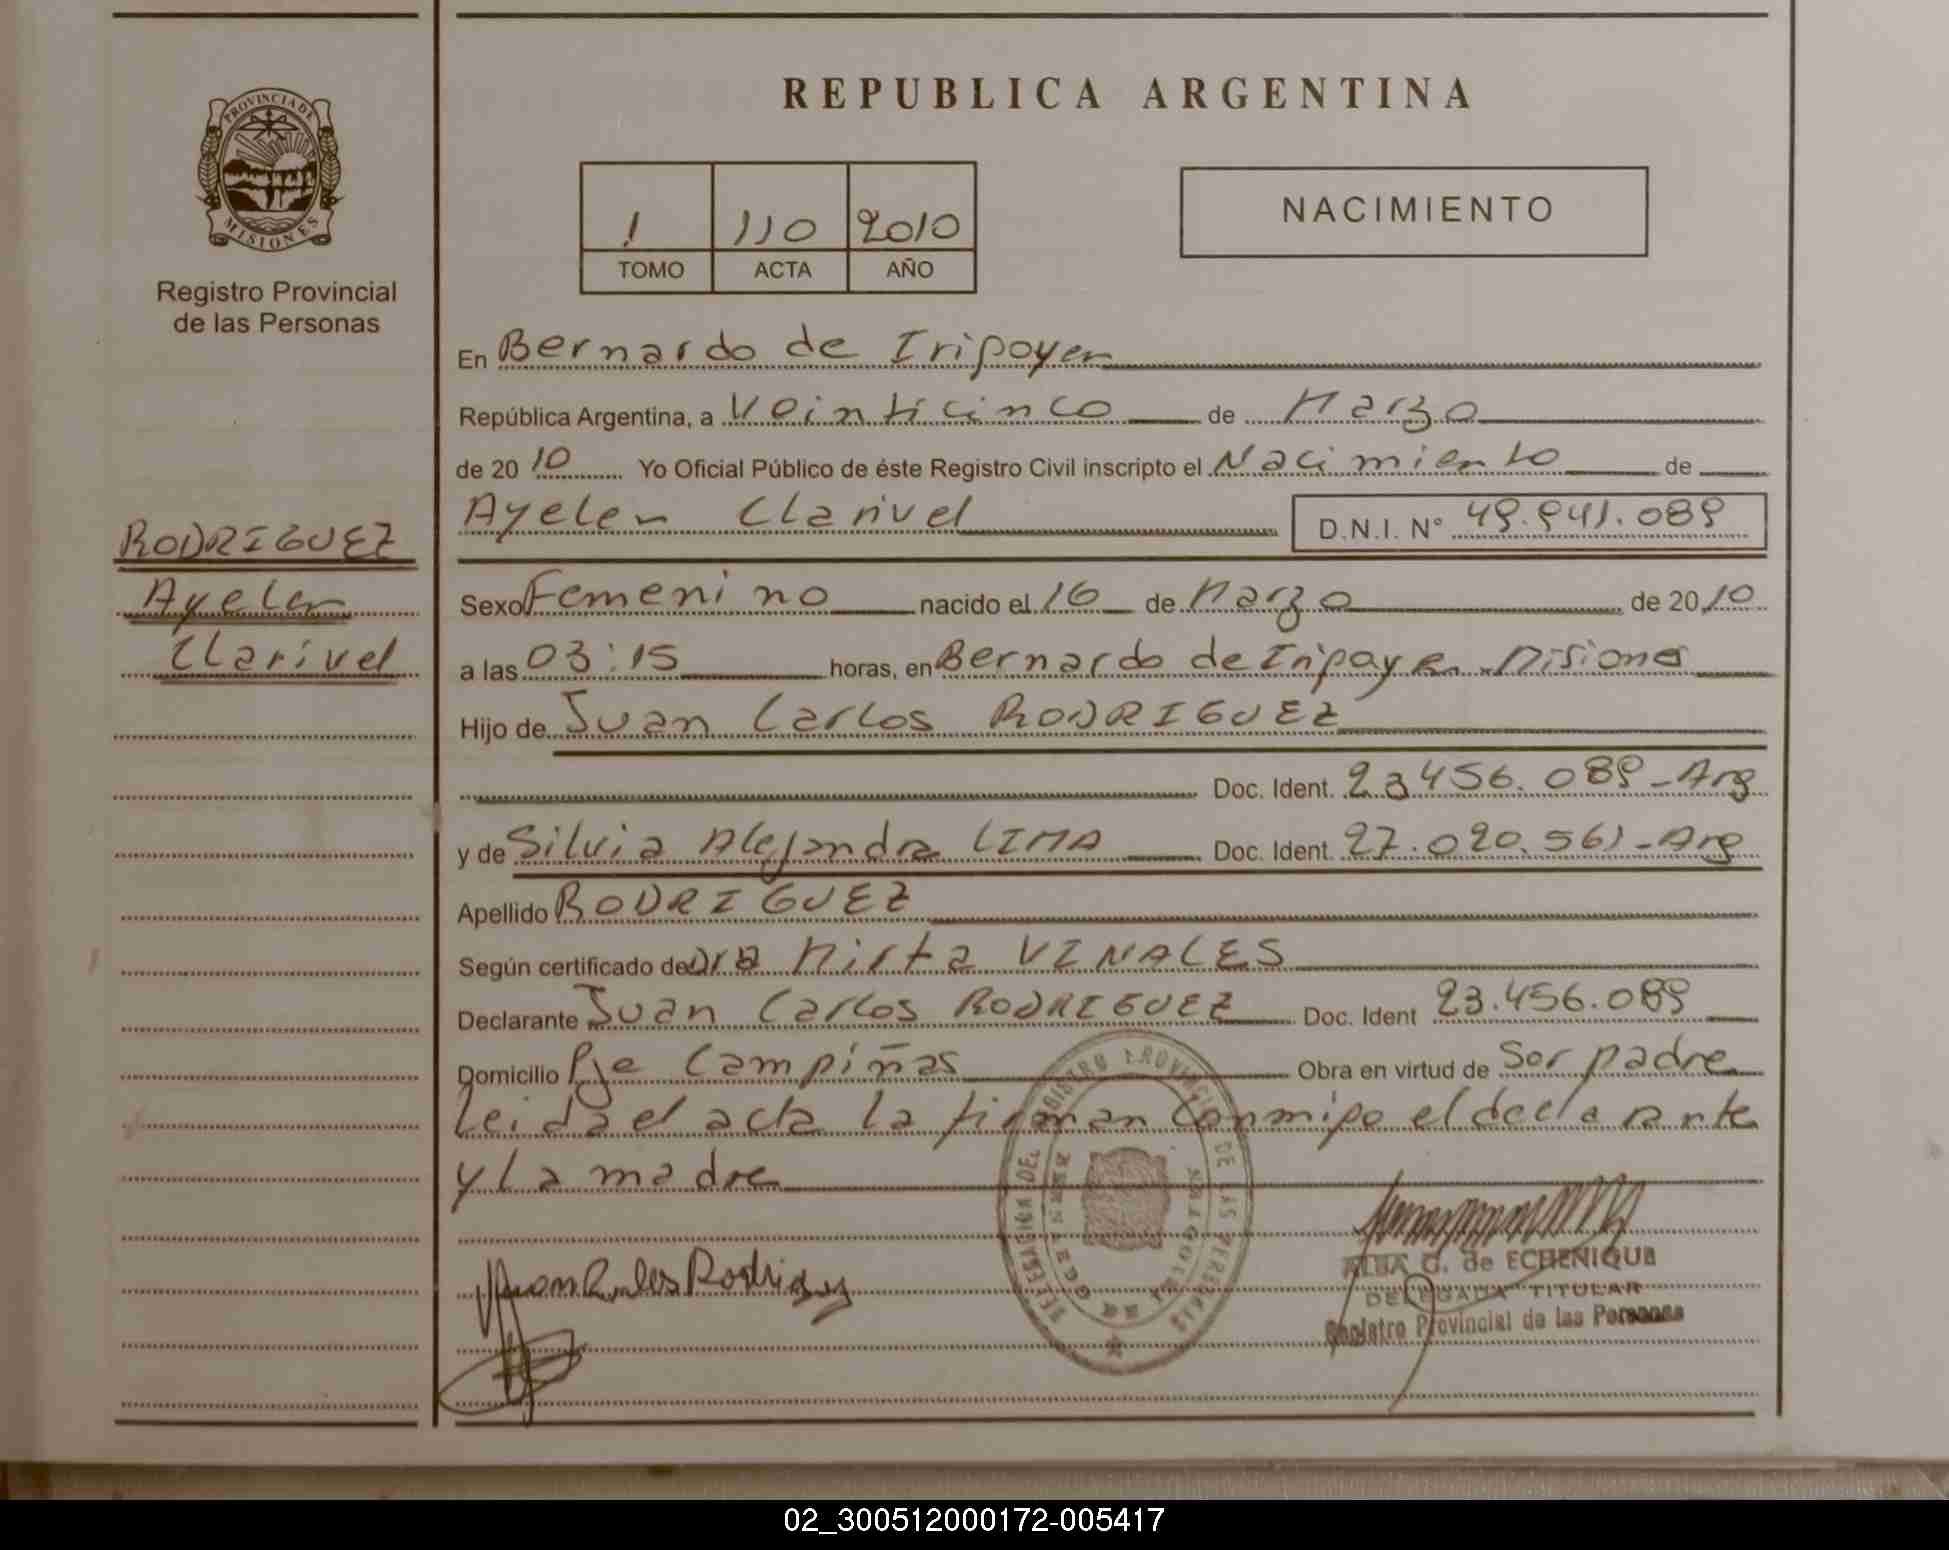 REPUBLICA ARGENTINA
PROVINCIA DE
MISIONES
Registro Provincial
de las Personas
1 110 2010
TOMO ACTA AÑO
NACIMIENTO
En Bernardo de Iripoyen
República Argentina, a Veinticinco de Marzo
de 20 10 Yo Oficial Público de éste Registro Civil inscripto el Nacimiento de
Ayelen Clarivel D.N.I. N° 49.941.089
RODRIGUEZ
Ayelen
Clarivel
Sexo Femenino nacido el 16 de Marzo de 20 10
a las 03:15 horas, en Bernardo de Iripoyen Misiones
Hijo de Juan Carlos RODRIGUEZ
Doc. Ident. 23.456.089-Arg
y de Silvia Alejandra LIMA Doc. Ident. 27.020.561-Arg
Apellido RODRIGUEZ
Según certificado de Dra Mirta VINALES
Declarante Juan Carlos RODRIGUEZ Doc. Ident 23.456.089
Domicilio Pje Campiñas Obra en virtud de Ser padre
Leida el acta la firman conmipo el declarante
y La madre
Juan Carlos Rodriguez
DELEGACION DEL REGISTRO PROVINCIAL DE LAS PERSONAS
ALBA G. de ECHENIQUE
DELEGADA TITULAR
Registro Provincial de las Personas
02_300512000172-005417